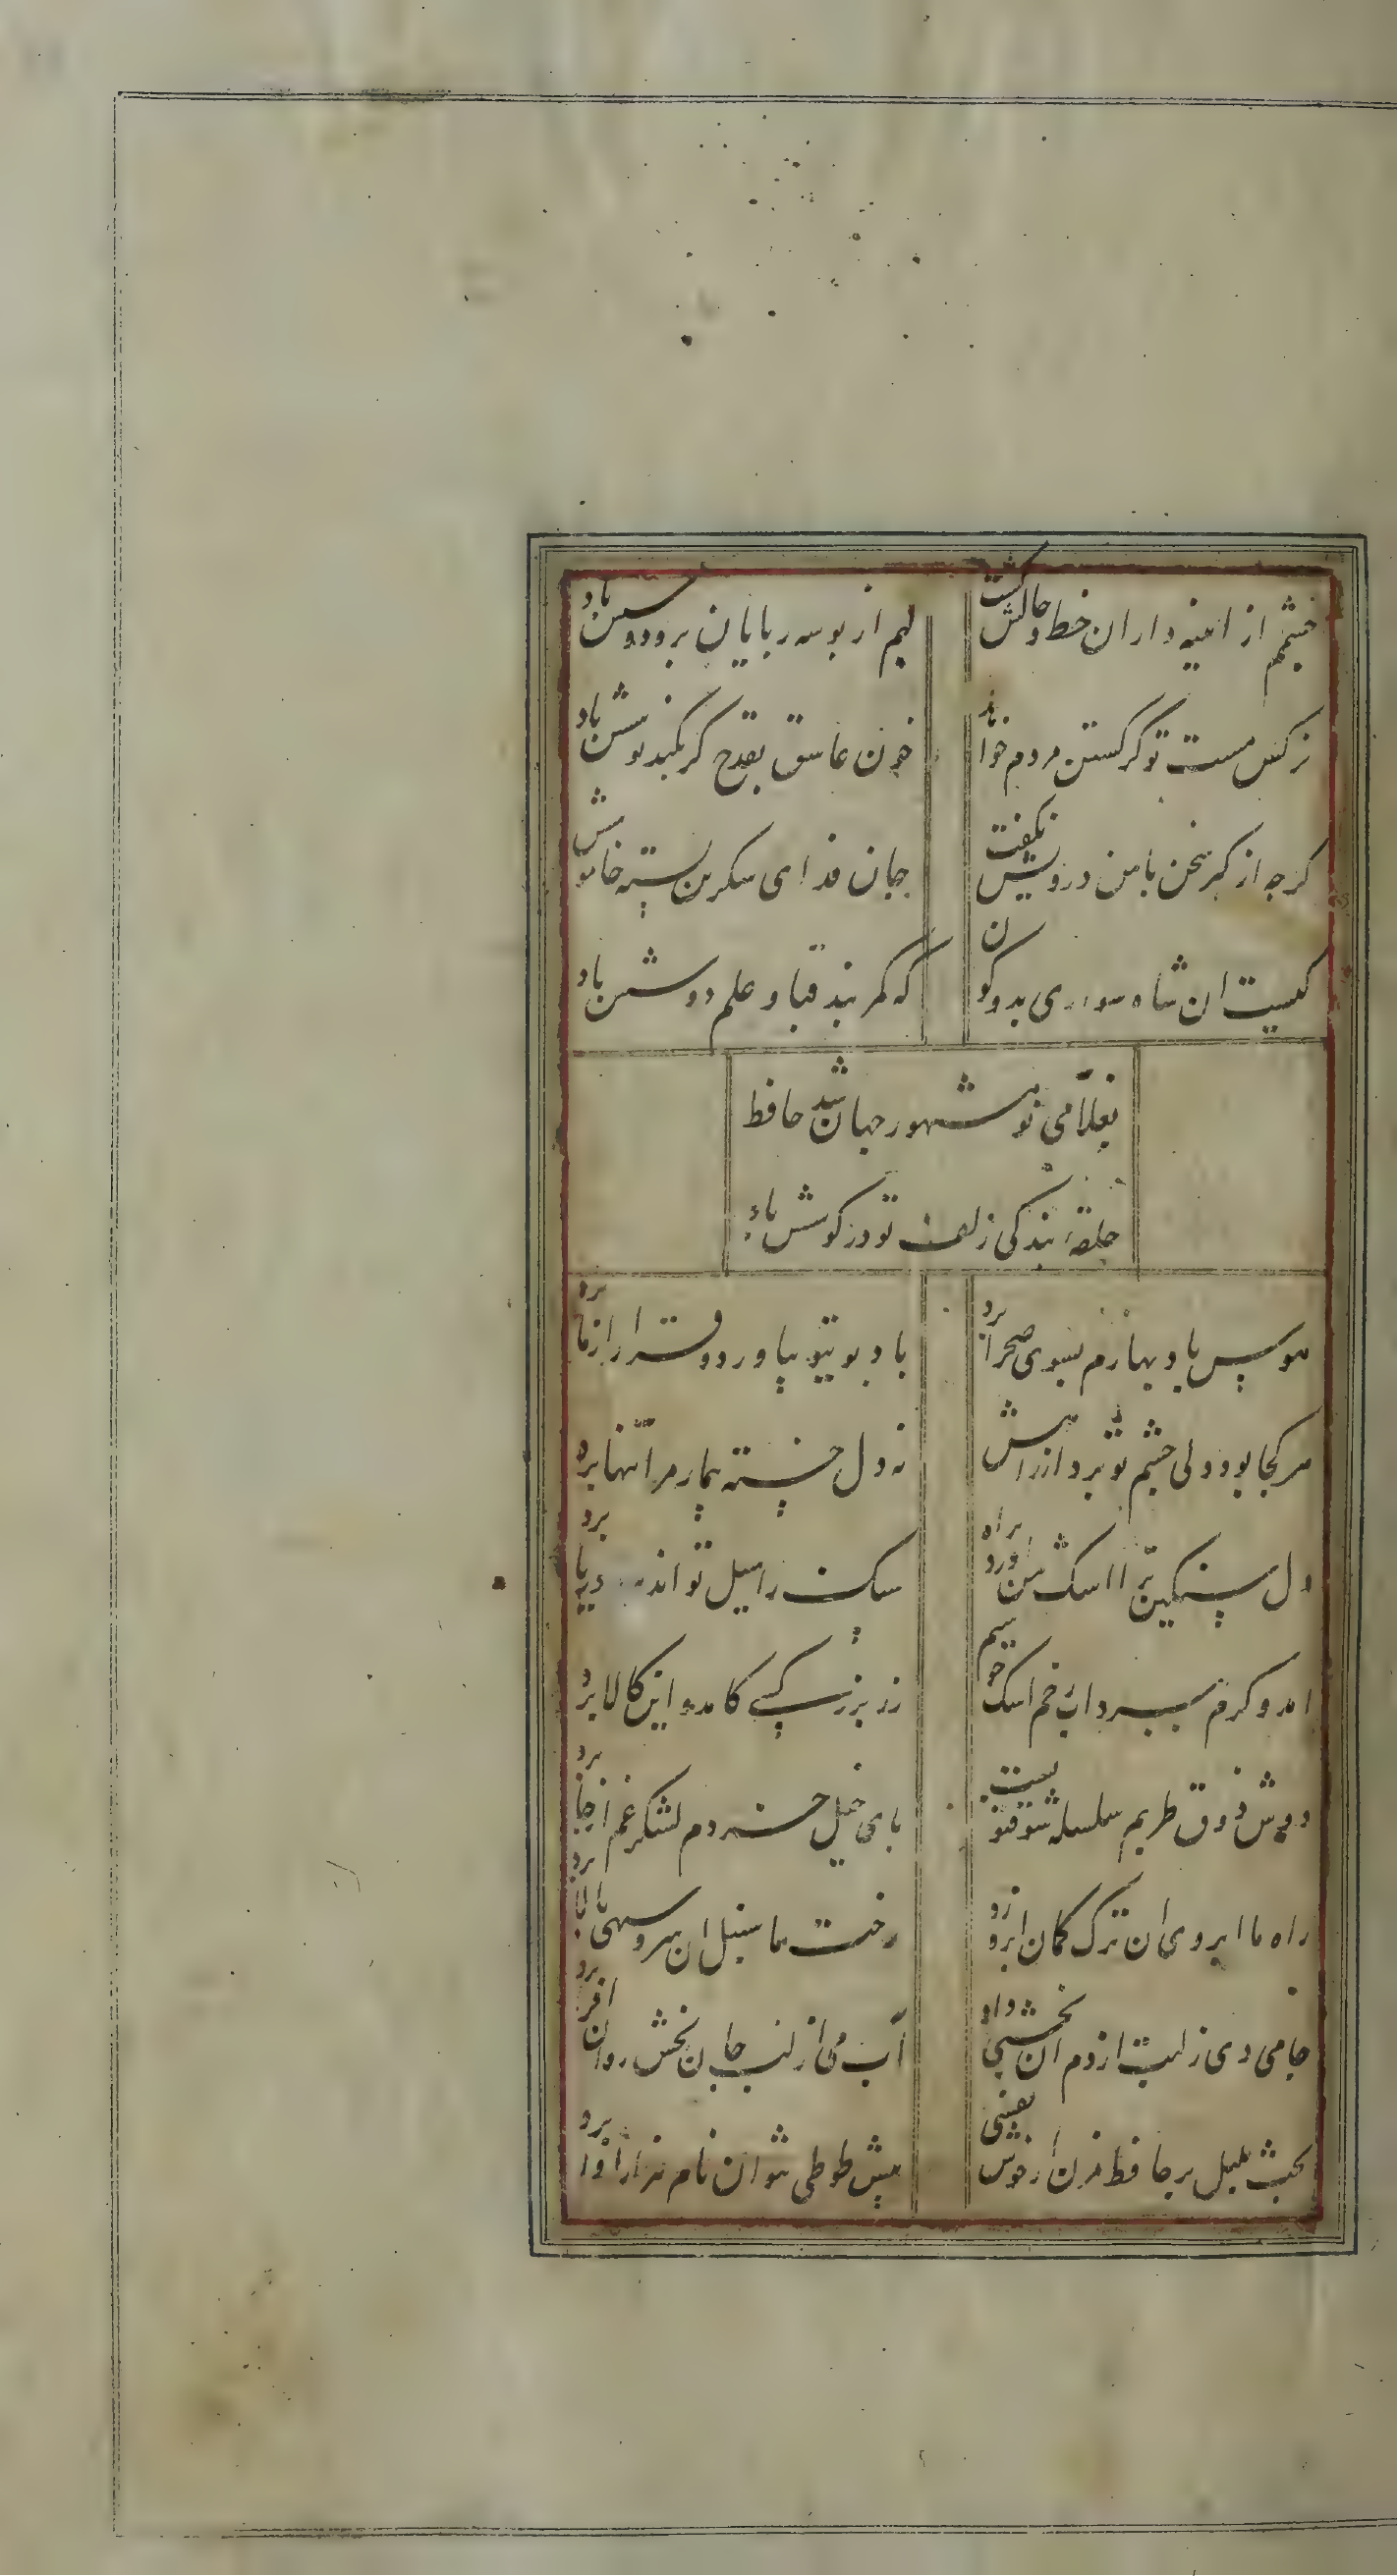 چشمم از اینه داران خط و خالش کشت
لبم از بوسه ربایان برو دوشش باد
نرکس مست تو کر کشتن مردم خواند
خون عاشق بقدح کر بکند نوشش باد
کرچه از کبر سخن با من درویش نکفت
جان فدای شکرین پسته خاموشش
کیست ان شاه سواری بدو کون
که کمر بند قبا و علم دوشش باد
بغلامی تو مشهور جهان شد حافظ
حلقه بندکی زلف تو در کوشش باد
هوس باد بهارم بسوی صحرا برد
باد بوی تو بیاورد و قرار از ما برد
هر کجا بود دلی چشم تو برد از راهش
نه دل خسته بیمار مرا تنها برد
دل سنکین ترا اشک من اورد براه
سنک را سیل تواند بدریا برد
امد و کرم ببرد اب رخم اشک چو سیم
زر بزر کسی کامد و این کالا برد
دوش ذوق طربم سلسله شوق تو بست
پای خیل خردم لشکر غم از جا برد
راه ما ابروی ان ترک کمان ابرو زد
رخت ما سنبل ان سرو سهی بالا برد
جام می دی ز لبت از دم ان بخشی داد
آب می از لب جان بخش روان افزا برد
بحث بلبل بر حافظ مزن از خوش نفسی
پیش طوطی نتوان نام هزار اوا برد